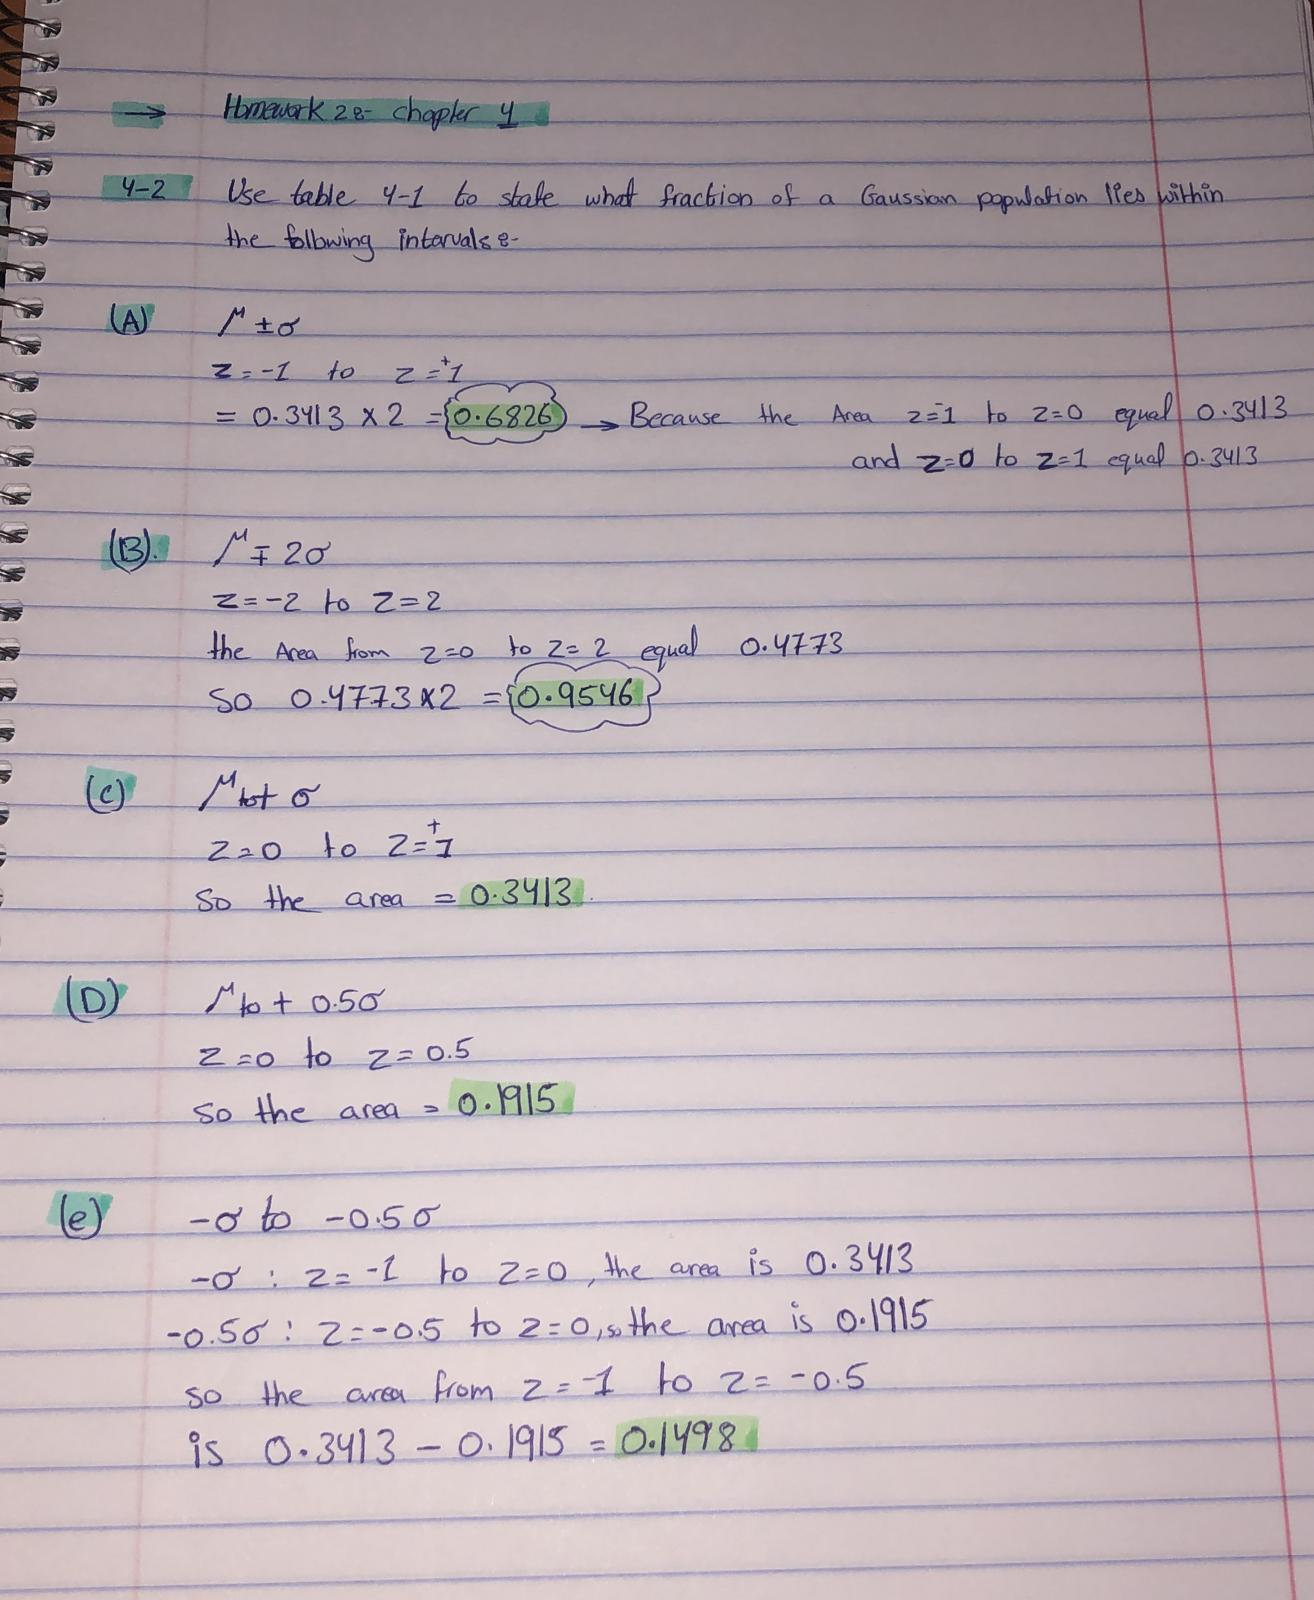 → Homework 2:- chapter 4
4-2 Use table 4-1 to state what fraction of a Gaussian population lies within
the following intervals:-
(A) μ ± σ
z = -1 to z = +1
= 0.3413 × 2 = 0.6826 → Because the Area z = -1 to z=0 equal 0.3413
and z=0 to z=1 equal 0.3413
(B). μ ∓ 2σ
z = -2 to z = 2
the Area from z=0 to z= 2 equal 0.4773
so 0.4773 × 2 = 0.9546
(C) μ to + σ
z=0 to z = +1
so the area = 0.3413.
(D) μ to + 0.5σ
z=0 to z= 0.5
so the area = 0.1915
(e) -σ to -0.5σ
-σ : z= -1 to z=0, the area is 0.3413
-0.5σ : z=-0.5 to z=0, so the area is 0.1915
so the area from z = -1 to z= -0.5
is 0.3413 - 0.1915 = 0.1498